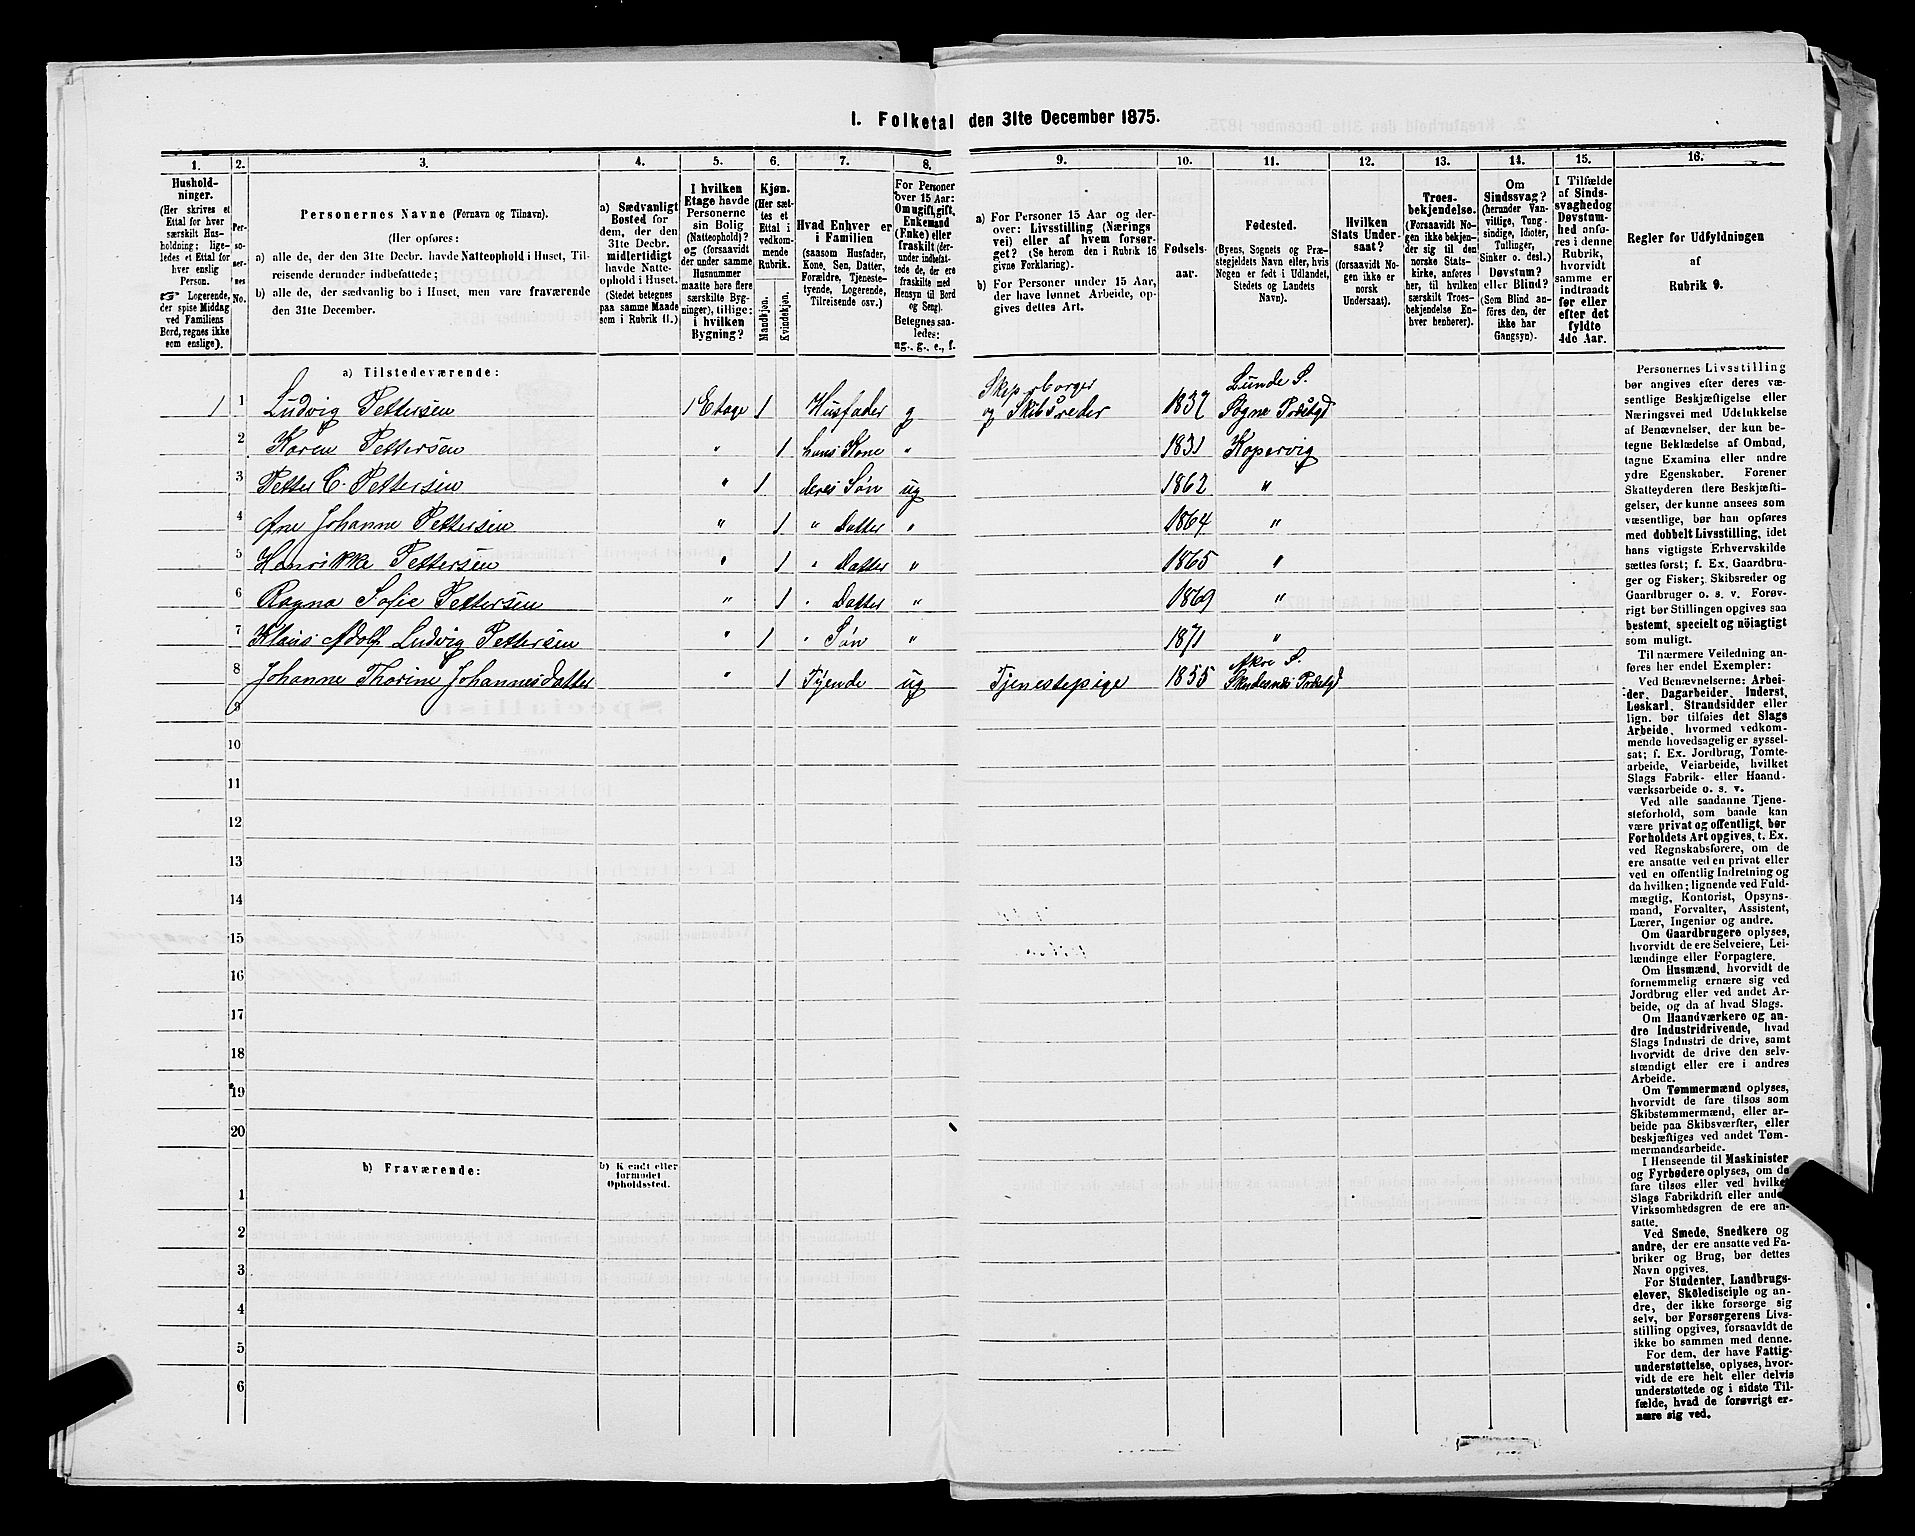 1. Folketal den 31te December 1875.
1. 2. 3. 4. 5. 6. 7. 8. 9. 10. 11. 12. 13. 14. 15. 16.
Hushold-
ninger.
(Her skrives et
Ettal for hver
særskilt Hus-
holdning; lige-
ledes et Ettal for
hver enslig
Person.
☞ Logerende,
der spise Middag
ved Familiens
Bord, regnes ikke
som enslige).
Per-
so-
ner-
nes
No.
Personernes Navne (Fornavn og Tilnavn).
(Her opføres:
a) alle de, der den 31te Decbr. havde Natteophold i Huset, Til-
reisende derunder indbefattede;
b) alle de, der sædvanlig bo i Huset, men vare fraværende
den 31te December.
a) Sædvanligt
Bosted for
dem, der den
31te Decbr.
midlertidigt
havde Natte-
ophold i Huset.
(Stedet betegnes
paa samme Maade
som i Rubrik 11.)
I hvilken
Etage havde
Personerne
sin Bolig
(Natteophold)?
og (forsaavidt
der under samme
Husnummer
maatte høre flere
særskilte Byg-
ninger), tillige:
i hvilken
Bygning?
Kjøn.
(Her sæt-
tes et
Ettal i
vedkom-
mende
Rubrik.
Mandkjøn.
Kvindekjøn.
Hvad Enhver er
i Familien
(saasom Husfader,
Kone, Søn, Datter,
Forældre, Tjeneste-
tyende, Logerende,
Tilreisende osv.)
For Personer
over 15 Aar:
Om ugift, gift,
Enkemand
(Enke) eller
fraskilt (der-
under indbefat-
tede de, der ere
fraskilte med
Hensyn til Bord
og Seng).
Betegnes saa-
ledes:
ug., g., e., f.
a) For Personer 15 Aar og der-
over: Livsstilling (Nærings
vei) eller af hvem forsør-
get? (Se herom den i Rubrik 16
givne Forklaring).
b) For Personer under 15 Aar,
der have lønnet Arbeide, op-
gives dettes Art.
Fødsels-
aar.
Fødested.
(Byens, Sognets og Præ-
stegjeldets Navn eller, hvis
Nogen er født i Udlandet,
Stedets og Landets
Navn).
Hvilken
Stats Under-
saat?
(forsaavidt No-
gen ikke er
norsk
Undersaat).
Troes-
bekjendelse.
(Forsaavidt No-
gen ikke bekjen-
der sig til den
norske Stats-
kirke, anføres
her, til hvilken
særskilt Troes-
bekjendelse En-
hver henhører).
Om
Sindssvag?
(herunder Van-
vittige, Tung-
sindige, Idioter,
Tullinger,
Sinker o. desl.)
Døvstum?
eller Blind?
(Som Blind an-
føres den, der
ikke har
Gangsyn).
I Tilfælde
af Sinds-
svaghed og
Døvstum-
hed anfø-
res i denne
Rubrik,
hvorvidt
samme er
indtraadt
før eller
efter det
fyldte
4de Aar.
Regler før Udfyldningen
af
Rubrik 9.
a) Tilstedeværende:
1 1 Ludvig Pettersen 1 Etage 1 Husfader g Skipsborger og Skibsreder 1837 Lunde S. Sogne Præstgd
2 Karen Pettersen " 1 hans Kone " 1831 Kopervig
3 Petter C. Pettersen " 1 deres Søn ug 1862 "
4 Ane Johanne Pettersen " 1 " Datter " 1864 "
5 Henrikka Pettersen " 1 " Datter " 1865 "
6 Ragna Sofie Pettersen " 1 " Datter " 1869 "
7 Klaus Adolf Ludvig Pettersen " 1 " Søn " 1871 "
8 Johanne Thorine Johannesdatter " 1 Tyende ug Tjenestepige 1855 Akre S. Skudesnes Præstgd
9
10
11
12
13
14
15
16
17
18
19
20
b) Fraværende:
b) Kjendt eller
formodet
Opholdssted.
1
2
3
4
5
6
Personernes Livsstilling
bør angives efter deres væ-
sentlige Beskjæftigelse eller
Næringsvei med Udelukkelse
af Benævnelser, der kun be-
tegne Beklædelse af Ombud,
tagne Examina eller andre
ydre Egenskaber. Forener
Skatteyderen flere Beskjæfti-
gelser, der kunne ansees som
væsentlige, bør han opføres
med dobbelt Livsstilling, idet
hans vigtigste Erhvervskilde
sættes først; f. Ex. Gaardbru-
ger og Fisker; Skibsreder og
Gaardbruger o. s. v. Forøv-
rigt bør Stillingen opgives saa
bestemt, specielt og nöiagtigt
som muligt.
Til nærmere Veiledning an-
føres her endel Exempler:
Ved Benævnelserne: Arbei-
der, Dagarbeider, Inderst,
Løskarl, Strandsidder eller
lign. bør tilføies det Slags
Arbeide, hvormed vedkom-
mende hovedsagelig er syssel-
sat; f. Ex. Jordbrug, Tomte-
arbeide, Veiarbeide, hvilket
Slags Fabrik- eller Haand-
værksarbeide o. s. v.
Ved alle saadanne Tjene-
steforhold, som baade kan
være privat og offentligt, bør
Forholdets Art opgives, t. Ex.
ved Regnskabsførere, om de
ere ansatte ved en privat eller
ved en offentlig Indretning og
da hvilken; lignende ved Fuld-
mægtig, Kontorist, Opsyns-
mand, Forvalter, Assistent,
Lærer, Ingeniør og andre.
Om Gaardbrugere oplyses,
hvorvidt de ere Selveiere, Lei-
lændinge eller Forpagtere.
Om Husmænd, hvorvidt de
fornemmelig ernære sig ved
Jordbrug eller ved andet Ar-
beide, og da af hvad Slags.
Om Haandværkere og an-
dre Industridrivende, hvad
Slags Industri de drive, samt
hvorvidt de drive den selv-
stændigt eller ere i andres
Arbeide.
Om Tømmermænd oplyses,
hvorvidt de fare tilsøs som
Skibstømmermænd, eller ar-
beide paa Skibsværfter, eller
beskjæftiges ved andet Tøm-
mermandsarbeide.
I Henseende til Maskinister
og Fyrbødere oplyses, om de
fare tilsøs eller ved hvilket
Slags Fabrikdrift eller anden
Virksomhedsgren de ere an-
satte.
Ved Smede, Snedkere og
andre, der ere ansatte ved Fa-
briker og Brug, bør dettes
Navn opgives.
For Studenter, Landbrugs-
elever, Skoledisciple og an-
dre, der ikke forsørge sig
selv, bør Forsørgerens Livs-
stilling opgives, forsaavidt de
ikke bo sammen med denne.
For dem, der have Fattig-
understøttelse, oplyses, hvor-
vidt de ere helt eller delvis
understøttede og i sidste Til-
fælde, hvad de forøvrigt er-
nære sig ved.